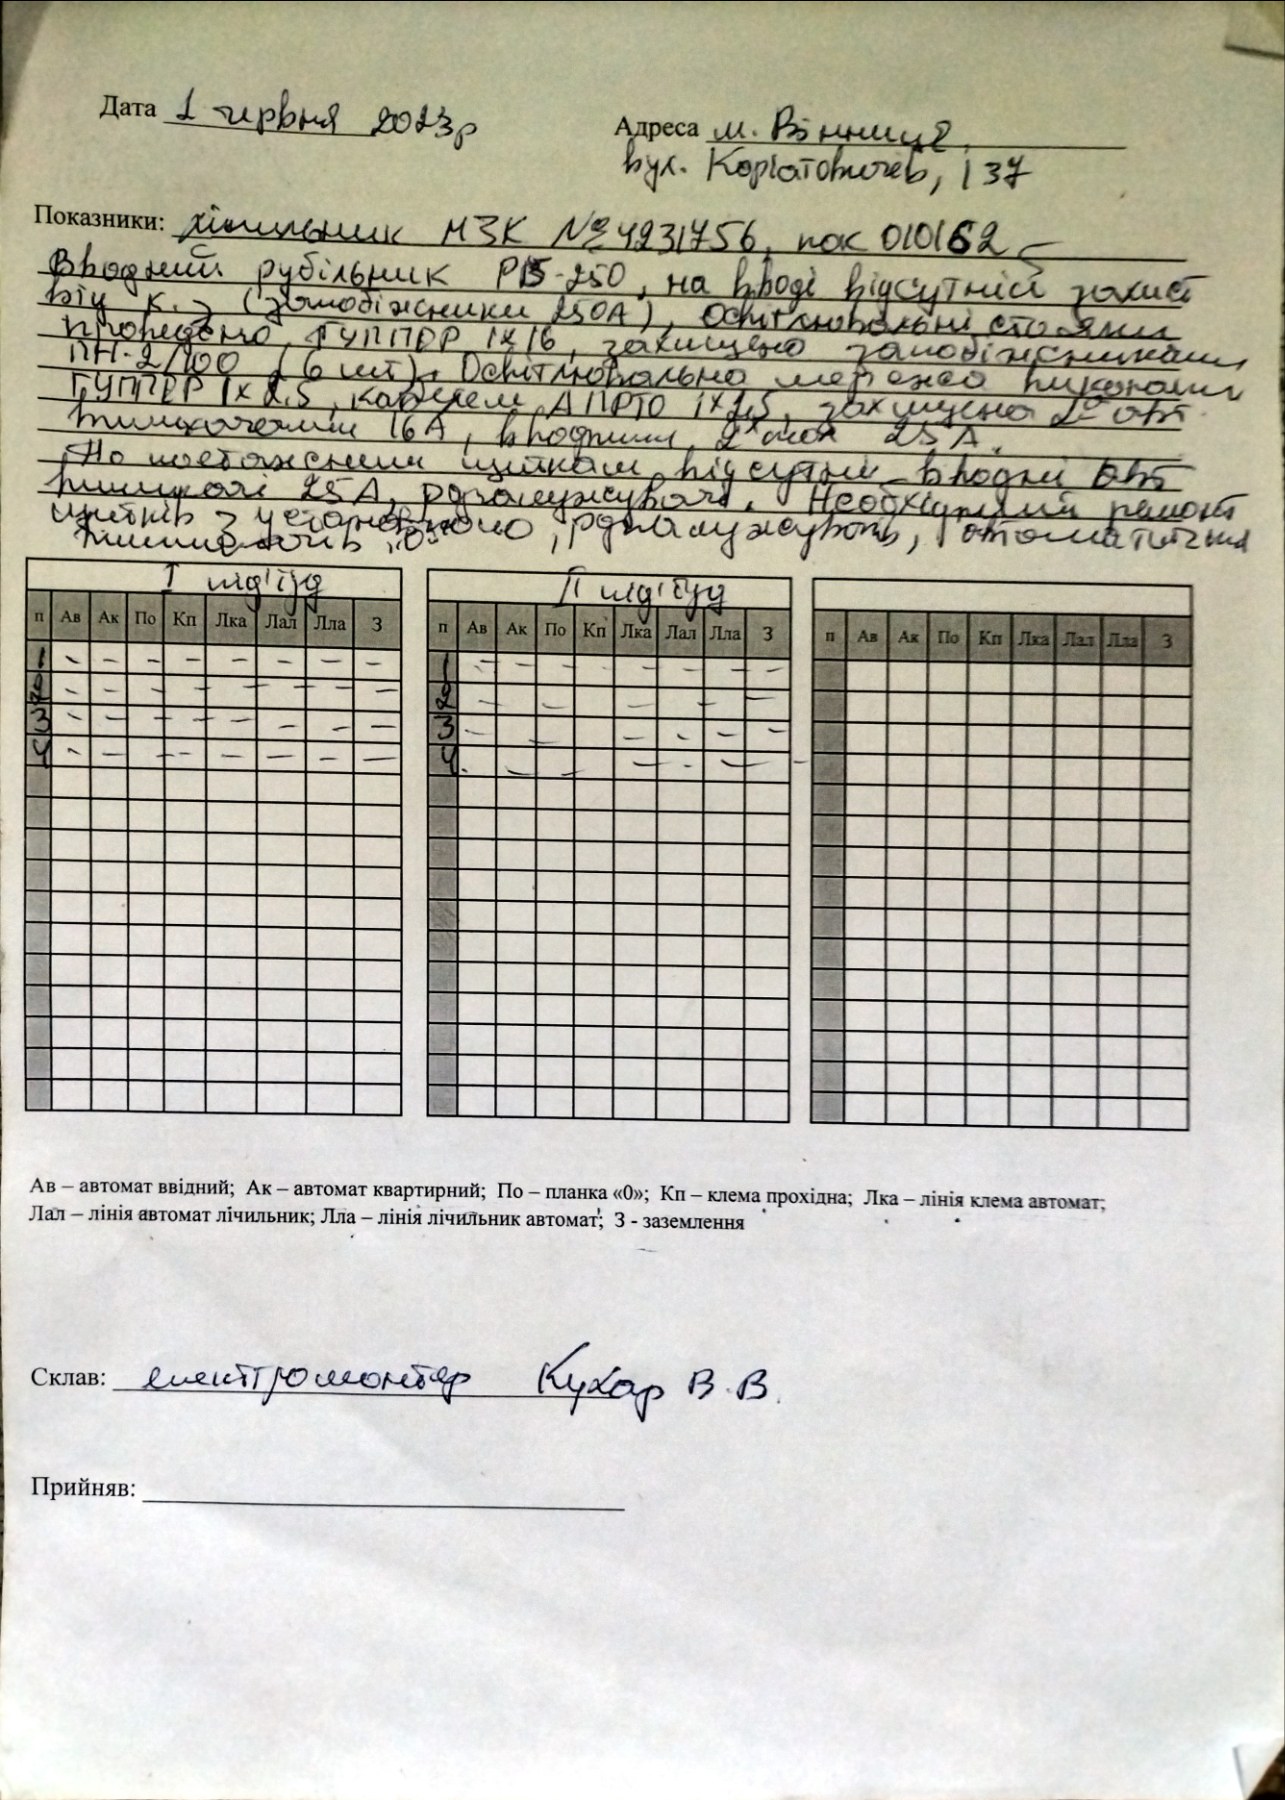 Дата 1 червня 2023р
Адреса м. Вінниця,
вул. Коріатовичів, 137
Показники: лічильник МЗК № 4231756, пок 010162
Вводний рубільник РБ-250, на вводі відсутній захист
від к.з (запобіжники 250А), освітлювальні стояки
проведено, 1х16, захищено запобіжниками
ПН-2/100 (6 шт). Освітлювальна мережа виконана
1х2,5, кабелем АПРТО 1х2,5, захищена 2а авт
вимикачами 16А, вводними 2а 25А.
На поетажних щитках відсутні вводні авт
вимикачі 25А, розмежувачі. Необхідний ремонт
щитків з установкою, автоматичних
вимикачів, "0"
I під'їзд
п Ав Ак По Кп Лка Лал Лла З
1 - - - - - - - -
2 - - - - - - - -
3 - - - - - - - -
4 - - - - - - - -
II під'їзд
п Ав Ак По Кп Лка Лал Лла З
1 - - - - - - -
2 - - - - -
3 - - - - - -
4 - - - - - -
п Ав Ак По Кп Лка Лал Лла З
Ав – автомат ввідний; Ак – автомат квартирний; По – планка «0»; Кп – клема прохідна; Лка – лінія клема автомат;
Лал – лінія автомат лічильник; Лла – лінія лічильник автомат; З - заземлення
Склав: електромонтер Кухар В.В.
Прийняв: